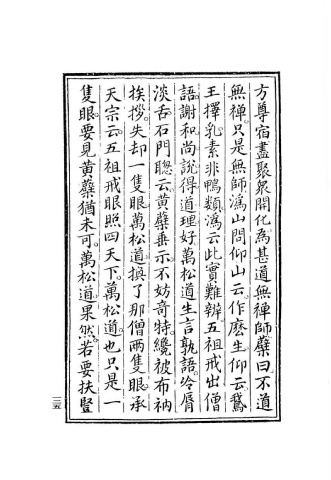 方尊宿盡聚衆開化爲甚道無禪師蘗曰不道
無禪只是無師溈山問仰山云作麼生仰云鵞
王擇乳素非鴨類溈云此實難辨五祖戒出僧
語謝和尚說得道理好萬松道生言孰語冷脣
淡舌石門聰云黃蘗垂示不妨奇特纔被布衲
挨拶失却一隻眼萬松道換了那僧兩隻眼承
天宗云五祖戒眼照四天下萬松道也只是一
隻眼要見黃蘗猶未可萬松道果然若要扶豎